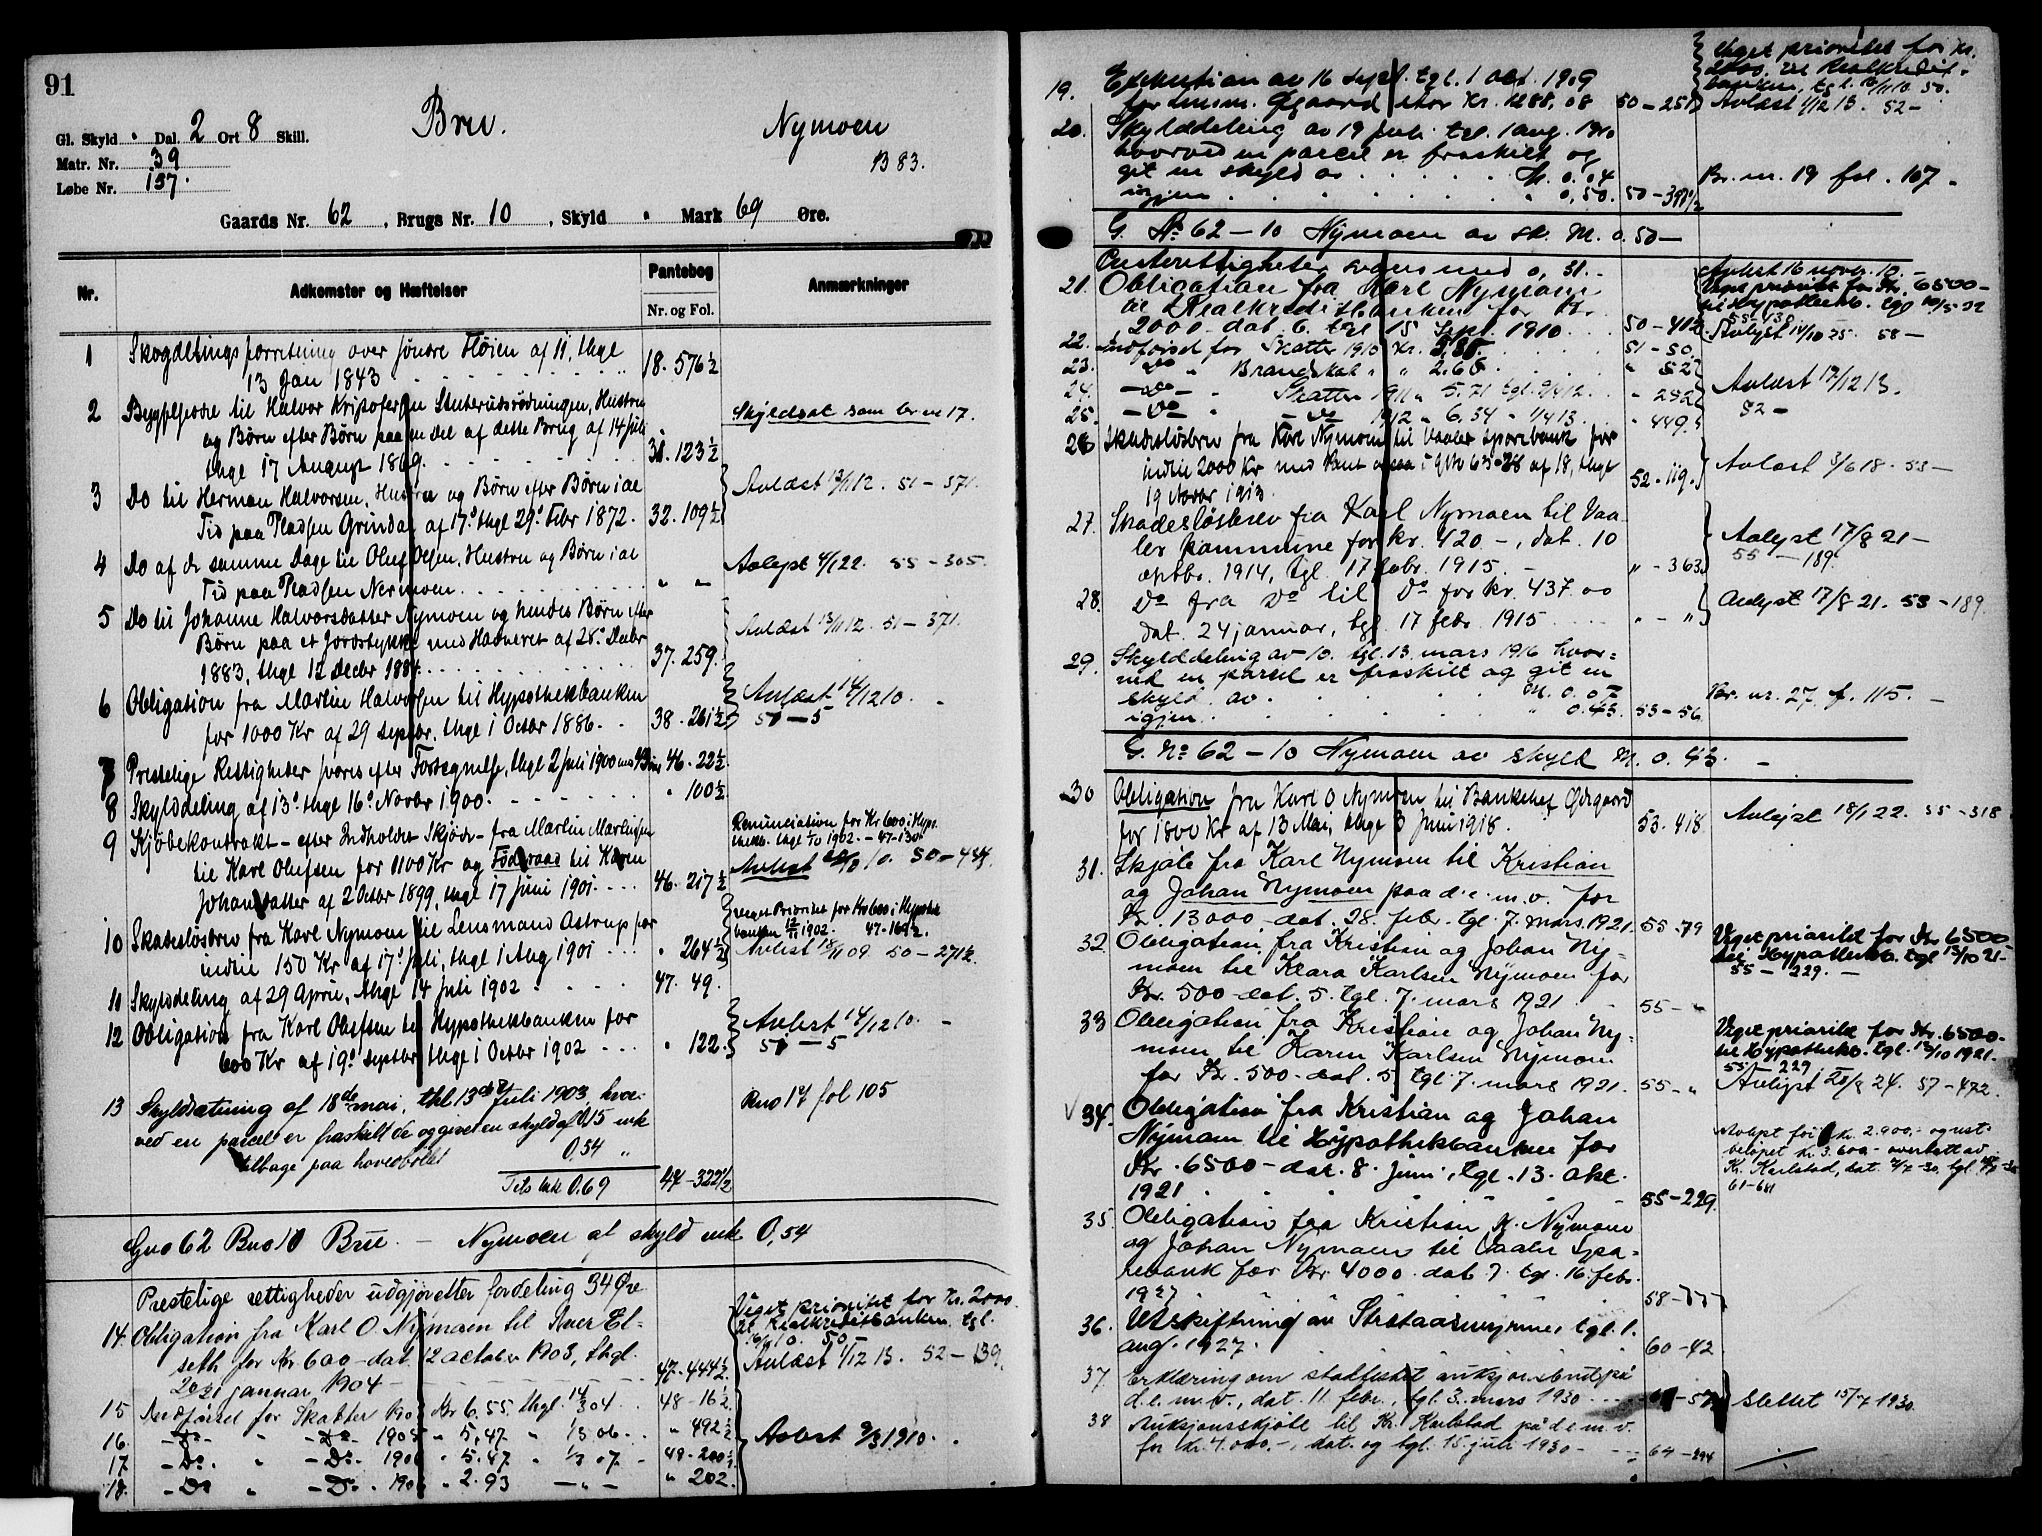 91
Gl. Skyld " Dal. 2 Ort 8 Skill.
Bru.
Nymoen
B 83.
Matr. Nr. 39
Løbe Nr. 137.
Gaards Nr. 62, Brugs Nr. 10, Skyld " Mark 69 Øre.
Nr. Adkomster og Hæftelser Pantebog Nr. og Fol. Anmærkninger
1 Skogdelingsforretning over søndre Fløien af 11, thgl
13 Jan 1843 18. 576½
2 Byggselsedel til Halvor Kristofersen Hustru
og Børn efter Børn paa en del af dette Brug af 14 Juli
thgl 17 August 1869. 31. 123½ Skyldsat som br. nr 17.
3 Do til Herman Halvorsen, Hustru og Børn efter Børn i al
Tid paa Pladsen Grindal af 17' thgl 29' Febr 1872. 32. 109½ Avlæst 13/11 12. 51-371.
4 Do af do samme Dage til Oluf Olsen, Hustru og Børn i al
Tid paa Pladsen Nermoen " " Avlyst 4/1 22. 55-305.
5 Do til Johanne Halvorsdatter Nymoen og hendes Børn efter
Børn paa et Jordstykke med Havneret af 28' Decbr
1883, thgl 12 Decbr 1884 37. 259. Avlæst 13/11 12. 51-371.
6 Obligation fra Martin Halvorsen til Hypothekbanken
for 1000 Kr af 29 Septbr. thgl 1 Octbr 1886. 38. 261½ Avlæst 14/12 10.
51-5
7 Prestelige Rettigheder svares efter Fortegnelse, thgl 2 Juli 1900 46. 22½
8 Skylddeling af 13' thgl 16' Novbr 1900. " 100½
9 Kjøbekontrakt - efter Indholdet Skjøde - fra Martin Martinsen
til Karl Olufsen for 1100 Kr og Føderaad til Karen
Johansdatter af 2 Octbr 1899, thgl 17 Juni 1901. 46. 217½
Renunciation for Kr 600 i Hyp.
thekb. thgl 1/10 1902. - 47-130
10 Skadesløsbrev fra Karl Nymoen til Lensmand Astrup for
indtil 150 Kr af 17' Juli, thgl 1 Aug 1901 " 264½
veget Prioritet for Kr 600 i Hypothek
banken 12/11 1902. 47-169½.
Avlæst 18/11 09. 50-271½.
11 Skylddeling af 29 April, thgl 14 Juli 1902 47. 49.
12 Obligation fra Karl Olufsen til Hypothekbanken for
600 Kr af 19' Septbr thgl 1 Octbr 1902 " 122. Avlæst 14/12 10.
51-5
13 Skylddeling af 18de mai, thl 13de Juli 1903, hvor
ved en parcel er fraskilt de og given en skyld af 0,15 mk
tilbage paa hovedbølet 0,54 "
Tils mk 0.69 47-322½ Bno 14 fol 105
Gno 62 Bno 10 Bru - Nymoen af skyld mk 0,54
Prestelige rettigheder udgjør efter fordeling 34 Øre
14. Obligation fra Karl O. Nymoen til
seth for Kr 600 - dat. 12 october 1903, thgl.
20 januar 1904 - 47-444½.
Veget prioritet for Kr. 2000
til Realkreditbanken tgl.
Avlæst 1/12 13. 52-139.
15 Udførsel for Skatter Kr 6.55. thgl. 14/3 04 48-16½
16. -Do- " -Do- 1905 " 5,47 " 1/3 06 " 492½
17 -Do- " -Do- 1906 " 5.87 " 1/3 07 49-200½
18. -Do " -Do- 1906 " 2.93 " 202. Avlæst 9/3 1910.
19. Exekution av 16 sept. tgl. 1 okt. 1909
for lensm. Øgaard stor Kr. 1288,08 50-251
Veget prioritet for Kr.
2000 til Realkredit-
banken, tgl. 16/11 10. 50.
Avlæst 1/12 13. 52-
20. Skylddeling av 19 juli tgl. 1 aug. 1910
hvorved en parcel er fraskilt og
git en skyld av M. 0.04
igjen " 0,50. 50-398½ Br. nr. 19 fol. 107.
G. No 62-10 Nymoen av sk. M. 0.50-
Presterettigheter svares med 0,31.
21. Obligation fra Karl Nymoen
til Realkreditbanken for Kr.
2000 dat 6. tgl 15 Sept. 1910 50-412
Avlæst 16 novbr. 10.-
Veget prioritet for Kr. 6500-
til Hypothekb. tgl 10/5 22
55-430
Avlyst 14/10 25. 58-
22. Udførsel for Skatter 1910 Kr. 3,85. 51-50.
23. Do " Brandskat " " 2.65 " 52
24. -Do- " Skatter 1911 " 5.71 tgl. 9/4 12. " 252
25. -Do- " -Do- 1912 " 6,54 " 1/4 13. " 449. Avlæst 13/12 13.
52-
26 Skadesløsbrev fra Karl Nymoen til Vaaler Sparebank for
indtil 2000 Kr med Pant ogsaa i gno 63-28 af 18, thgl
19 Novbr 1913. 52-119. Avlæst 3/6 18. 53-
27. Skadesløsbrev fra Karl Nymoen til Vaa-
ler kommune for kr. 420 -, dat. 10
oktbr. 1914, tgl. 17 febr. 1915. " - 363 Avlyst 17/8 21-
55-189.
28. Do fra Do til Do for kr. 437.00
dat. 24 januar, tgl 17 febr. 1915 " - " Avlyst 17/8 21. 53-189.
29. Skylddeling av 10. tgl. 13. mars 1916 hvor-
ved en parcel er fraskilt og git en
skyld av M. 0.07
igjen " 0.43. 53-56 Br. nr. 27. f. 115. -
G. No 62-10 Nymoen av skyld M. 0.43. -
30 Obligation fra Karl O Nymoen til Banksjef Ødegaard
for 1800 Kr af 13 Mai, thgl 3 Juni 1918. 53. 418 Avlyst 18/1 22. 55-318
31. Skjøte fra Karl Nymoen til Kristian
og Johan Nymoen paa d.e.m.v. for
Kr. 13000, dat. 28. febr. tgl. 7. mars. 1921. 55-79
32. Obligation fra Kristian og Johan Ny-
moen til Klara Karlsen Nymoen for
Kr. 500 - dat. 5. tgl. 7. mars 1921 55- "
Veget prioritet for Kr 6500-
til Hypothekb. tgl 13/10 21-
55-229. -
33 Obligation fra Kristian og Johan Ny-
moen til Karen Karlsen Nymoen
for Kr. 500 - dat. 5 tgl. 7. mars 1921. 55- "
Veget prioritet for Kr. 6500-
til Hypothekb. tgl. 13/10 1921.
55-229
Avlyst 25/8 24. 57-472.
34. Obligation fra Kristian og Johan
Nymoen til Hypothekbanken for
Kr. 6500 - dat. 8. Juni, tgl. 13. okt.
1921 55-229.
Avlyst for kr. 2.900,- og rest-
beløpet kr. 3.600.- overtatt av
Kr. Karlstad, dat.
61-611
35 Obligation fra Kristian K. Nymoen
og Johan Nymoen til Vaaler Spa-
rebank for Kr 4000. dat 7. tgl. 16 febr.
1927
36. Utskiftning av tgl. 1.
aug. 1927. 60-42
37. Erklæring om stadfestet auksjonsbud på
d.e.m.v., dat. 11 febr., tgl. 3. mars 1930 slettet 15/7 1930
38 Auksjonsskjøte til Kr. Karlstad på d.e.m.v.
for kr. 4.000,-, dat. og tgl. 15. juli 1930 - 64-294